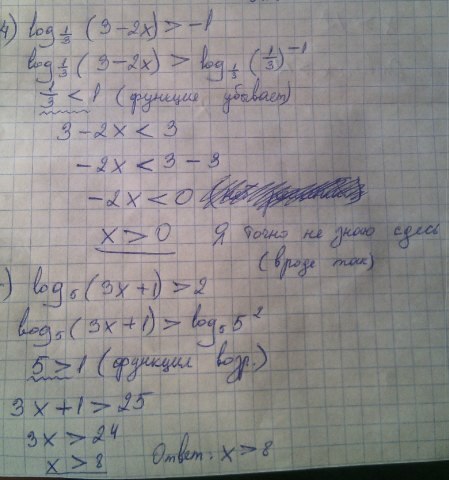 4) log_{1/3} (3-2x) > -1
log_{1/3} (3-2x) > log_{1/3} (1/3)^{-1}
1/3 < 1 (функция убывает)
3-2x < 3
-2x < 3-3
-2x < 0
x > 0 Я точно не знаю здесь
(вроде так)
) log_5 (3x+1) > 2
log_5 (3x+1) > log_5 5^2
5 > 1 (функция возр.)
3x+1 > 25
3x > 24
x > 8 Ответ: x > 8